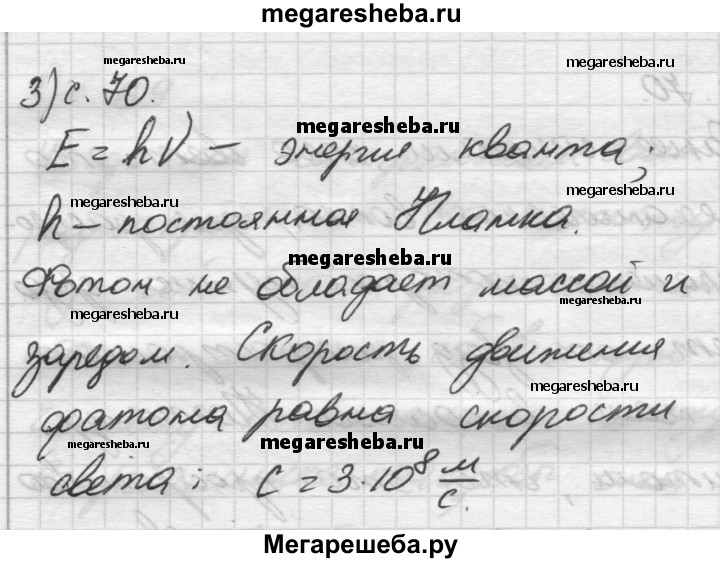 megaresheba.ru
megaresheba.ru
megaresheba.ru
3) с. 70.
megaresheba.ru
E = hν – энергия кванта;
megaresheba.ru
megaresheba.ru
h – постоянная Планка.
megaresheba.ru
Фотон не обладает массой и
megaresheba.ru
megaresheba.ru
зарядом. Скорость движения
megaresheba.ru
фотона равна скорости
megaresheba.ru
megaresheba.ru
света; c = 3·10⁸ м/с.
Мегарешеба.ру